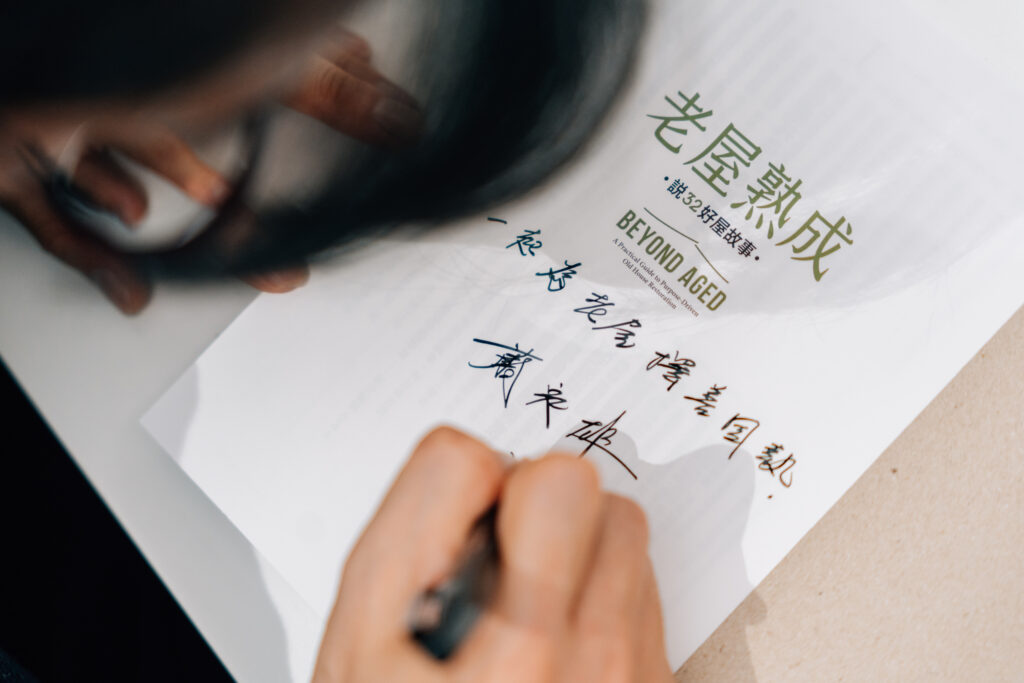 老屋熟成
·說32好屋故事·
BEYOND AGED
A Practical Guide to Purpose-Driven
Old House Restoration
一起為老屋擇善固熟.
蕭定雄